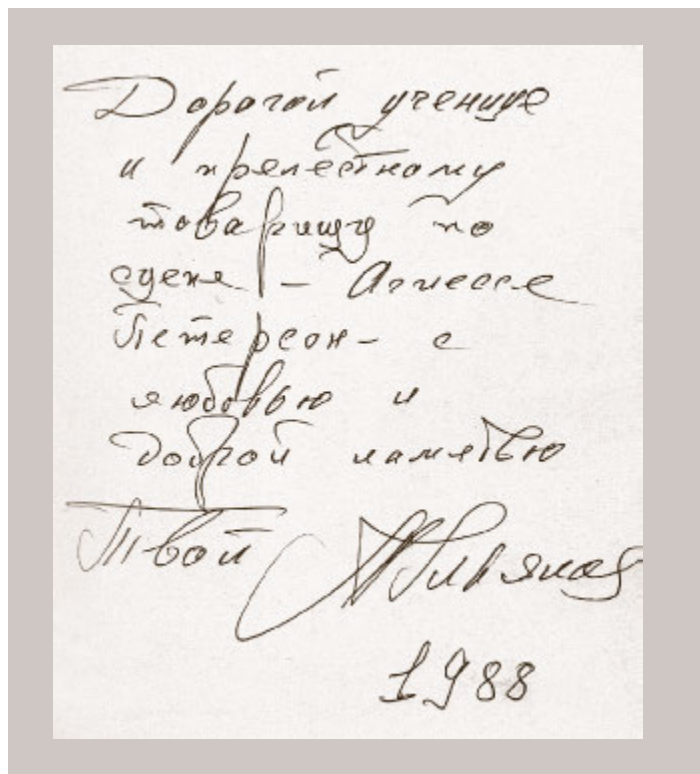 Дорогой ученице
и прелестному
товарищу по
сцене – Агнессе
Петерсон – с
любовью и
доброй памятью
Твой
1988